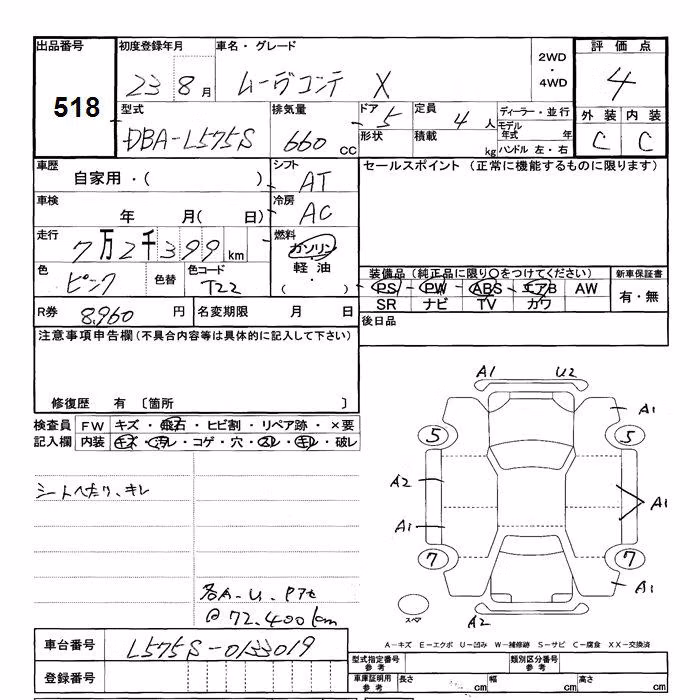 出品番号 初度登録年月 車名・グレード 2WD・4WD 評価点
518 23 8月 ムーヴコンテ X 4
型式 排気量 ドア 5 定員 4人 ディーラー・並行 外装 内装
DBA-L575S 660 CC 形状 積載 kg モデル年式 年 C C
ハンドル 左・右
車歴 シフト セールスポイント (正常に機能するものに限ります)
自家用・( ) AT
車検 冷房
年 月( 日) AC
走行 燃料
7万2千399km ガソリン
色 色替 色コード 軽油
ピンク T22 ・( )
装備品(純正品に限り○をつけてください) 新車保証書
PS PW ABS エアB AW 有・無
SR ナビ TV カワ
R券 8,960円 名変期限 月 日 後日品
注意事項申告欄(不具合内容等は具体的に記入して下さい)
修復歴 有 〔箇所 〕
検査員 FW キズ・飛石・ヒビ割・リペア跡・×要
記入欄 内装 キズ・汚レ・コゲ・穴・スレ・キレ・破レ
シートへたり、キレ
各A-U-P7セ
@72,400km
A1 U2
A1
5 5
A2
A1
A1
7 7
A1
スペア
A2
A-キズ E-エクボ U-凹み W-補修跡 S-サビ C-腐食 XX-交換済
車台番号 L575S-0133019
型式指定番号 参考 類別区分番号 参考
登録番号
車庫証明用 参考 長さ cm 幅 cm 高さ cm